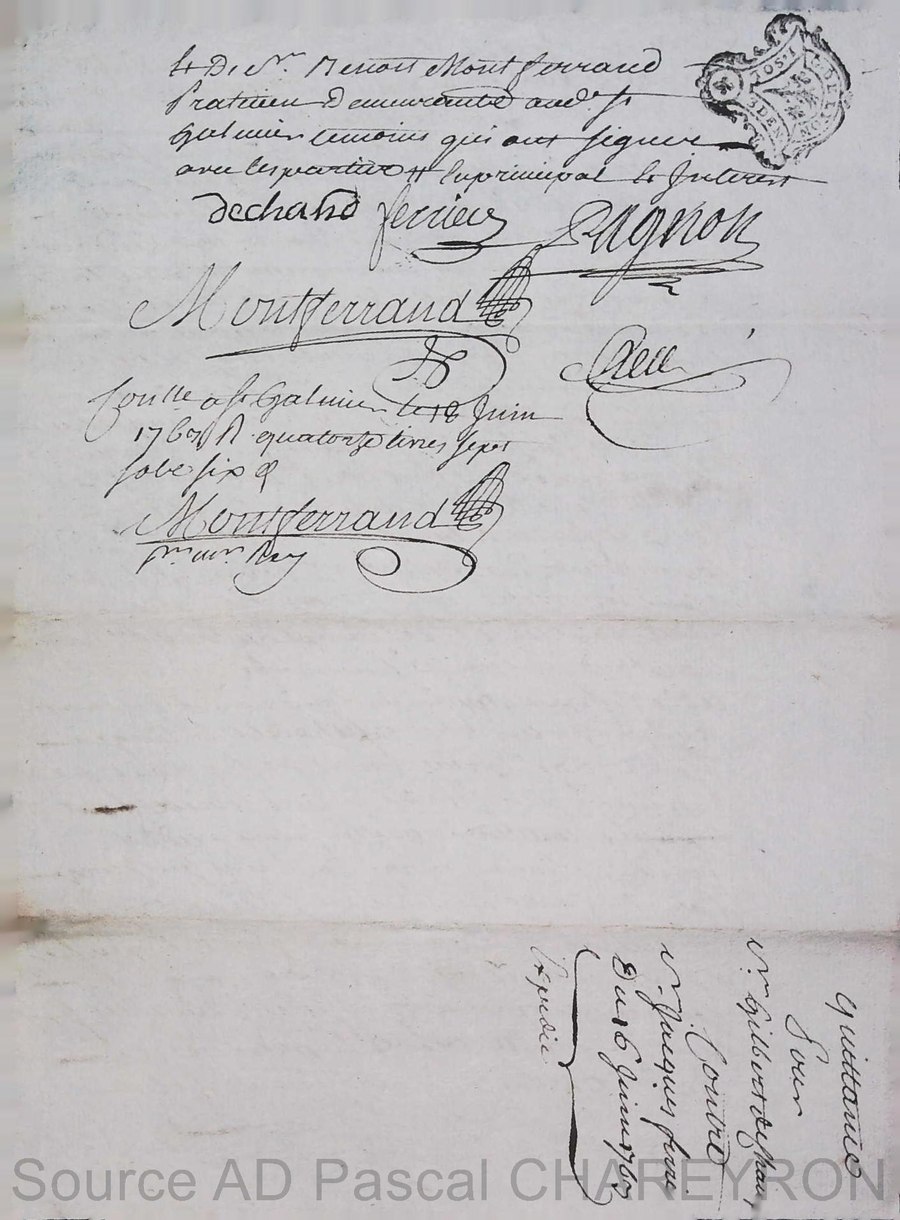 & De Sr. Benoit Montferrand
Praticien Demeurant aud. St
Galmier temoins qui ont signer
avec les parties # le principal les Interest
Dechand ferrier Ragnon
Montferrand
Conllé a St Galmier le 18 Juin
1767 R quatorze livres sept
sols six d
Montferrand
Quittance
Pour
Sr. Gilbert dechau,
Contre
Sr. Jacques
Du 16 Juin 1767
Expedié
Source AD Pascal CHAREYRON